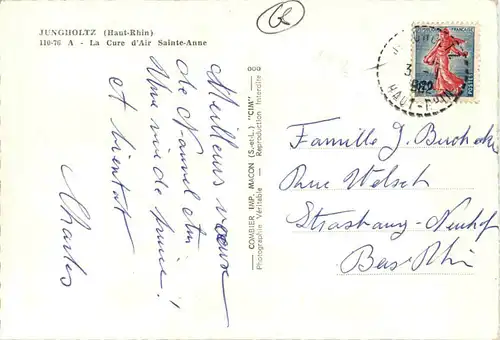 JUNGHOLTZ (Haut-Rhin)
110-76 A - La Cure d'Air Sainte-Anne
Meilleurs vœux
de Nouvel An
Une vie de
et bientôt
Charles
COMBIER IMP. MACON (S.-et-L.) "CIM"
Photographie Véritable - Reproduction Interdite
FRANÇAISE
POSTES
3 - 1
1962
HAUT-RHIN
Famille J.
Rue Welsch
Strasbourg-Neuhof
Bas-Rhin